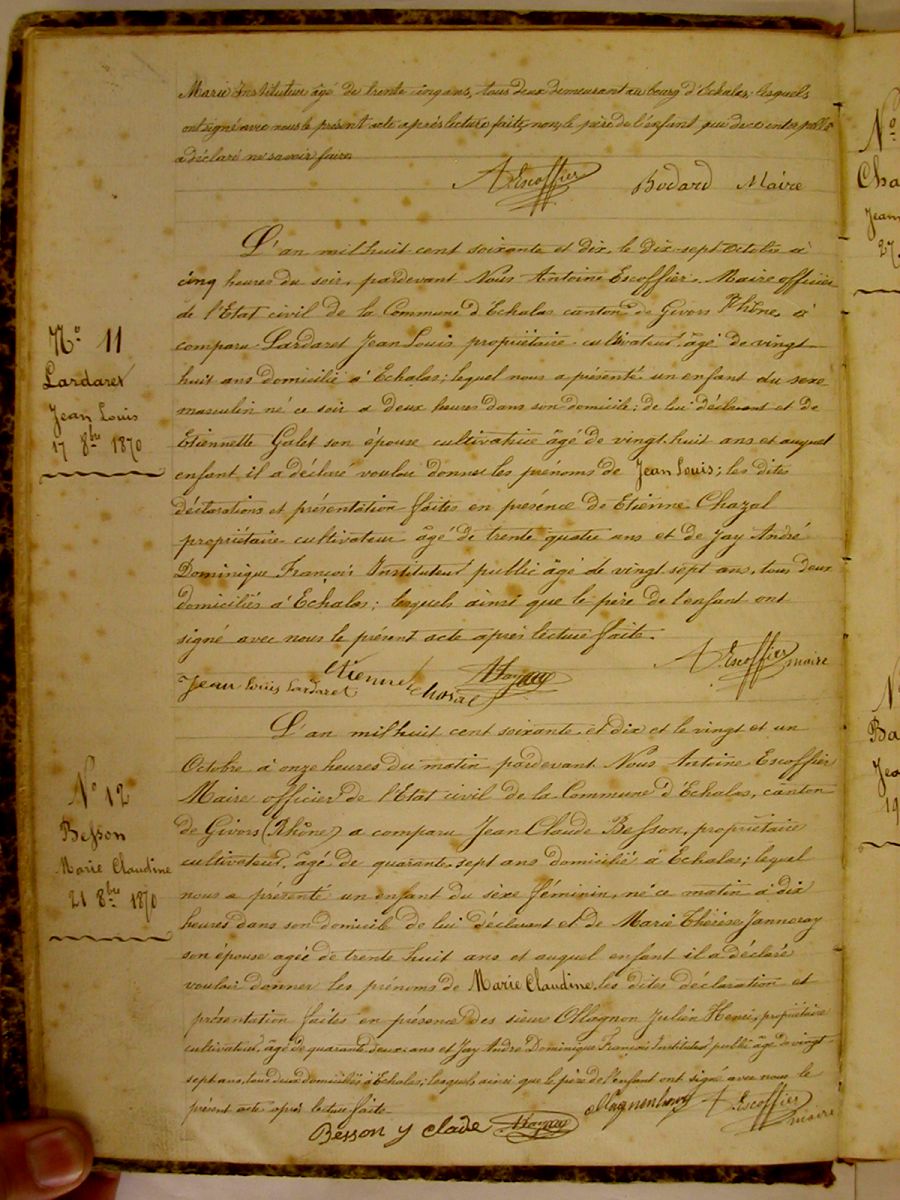 Marie Instituteur âgé de trente cinq ans, tous deux demeurant au bourg d'Echalas; lesquels
ont signé avec nous le présent acte après lecture faite, non le père de l'enfant que de ce
a déclaré ne savoir faire
A Escoffier Bodard Maire
N° 11
Lardaret
Jean Louis
17 8bre 1870
L'an mil huit cent soixante et dix, le dix-sept octobre à
cinq heures du soir, pardevant Nous Antoine Escoffier, Maire officier
de l'Etat civil de la Commune d'Echalas canton de Givors Rhône, à
comparu Lardaret Jean Louis propriétaire cultivateur âgé de vingt
huit ans domicilié à Echalas; lequel nous a présenté un enfant du sexe
masculin né ce soir a deux heures dans son domicile; de lui déclarant et de
Etiennette Galet son épouse cultivatrice âgé de vingt huit ans et auquel
enfant il a déclaré vouloir donner les prénoms de Jean Louis; les dites
déclarations et présentation faites en présence de Etienne Chazal
propriétaire cultivateur âgé de trente quatre ans et de Jay André
Dominique François Instituteur public âgé de vingt sept ans, tous deux
domiciliés à Echalas; lesquels ainsi que le père de l'enfant ont
signé avec nous le présent acte après lecture faite.
Jean Louis Lardaret Etienne Chosal A Escoffier maire
N° 12
Besson
Marie Claudine
21 8bre 1870
L'an mil huit cent soixante et dix et le vingt et un
Octobre à onze heures du matin pardevant Nous Antoine Escoffier
Maire officier de l'Etat civil de la Commune d'Echalas, canton
de Givors (Rhône) a comparu Jean Claude Besson, propriétaire
cultivateur, âgé de quarante-sept ans domicilié à Echalas; lequel
nous a présenté un enfant du sexe féminin, né ce matin a dix
heures dans son domicile de lui déclarant et de Marie Thérèse Janneray
son épouse agée de trente huit ans et auquel enfant il a déclaré
vouloir donner les prénoms de Marie Claudine, les dites déclaration et
présentation faites en présence des sieurs Ollagnon Julien Henri, propriétaire
cultivateur, âgé de quarante deux ans et Jay André Dominique François Instituteur public âgé de vingt
sept ans, tous deux domiciliés à Echalas; lesquels ainsi que le père de l'enfant ont signé avec nous le
présent acte après lecture faite.
Besson y Clade A Escoffier maire
N°
Cha
Jean
27
N
Ba
Jea
19